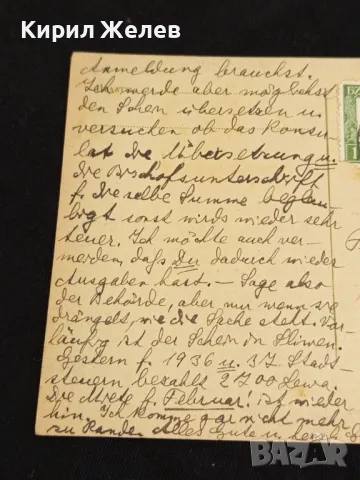 Кирил Желев
Anmeldung brauchst.
Ich werde aber möglichst
den Schein übersetzen u.
versuchen ob das Konsu-
lat die Übersetzung u.
die Bischofsunterschrift
f. dieselbe Summe beglau-
bigt sonst wirds wieder sehr
teuer. Ich möchte auch ver-
meiden, daß Du dadurch wieder
Ausgaben hast. – Sage also
der Behörde, aber nur wenn sie
drängelt, wie die Sache steht. Vor-
läufig ist der Schein in Sliwen.
Gestern f. 1936 u. 37 Stadt-
steuern bezahlt 2700 Lewa.
Die Miete f. Februar ist wieder
hin. Ich komme gar nicht mehr
zu Rande. Alles Gute u.
bazar